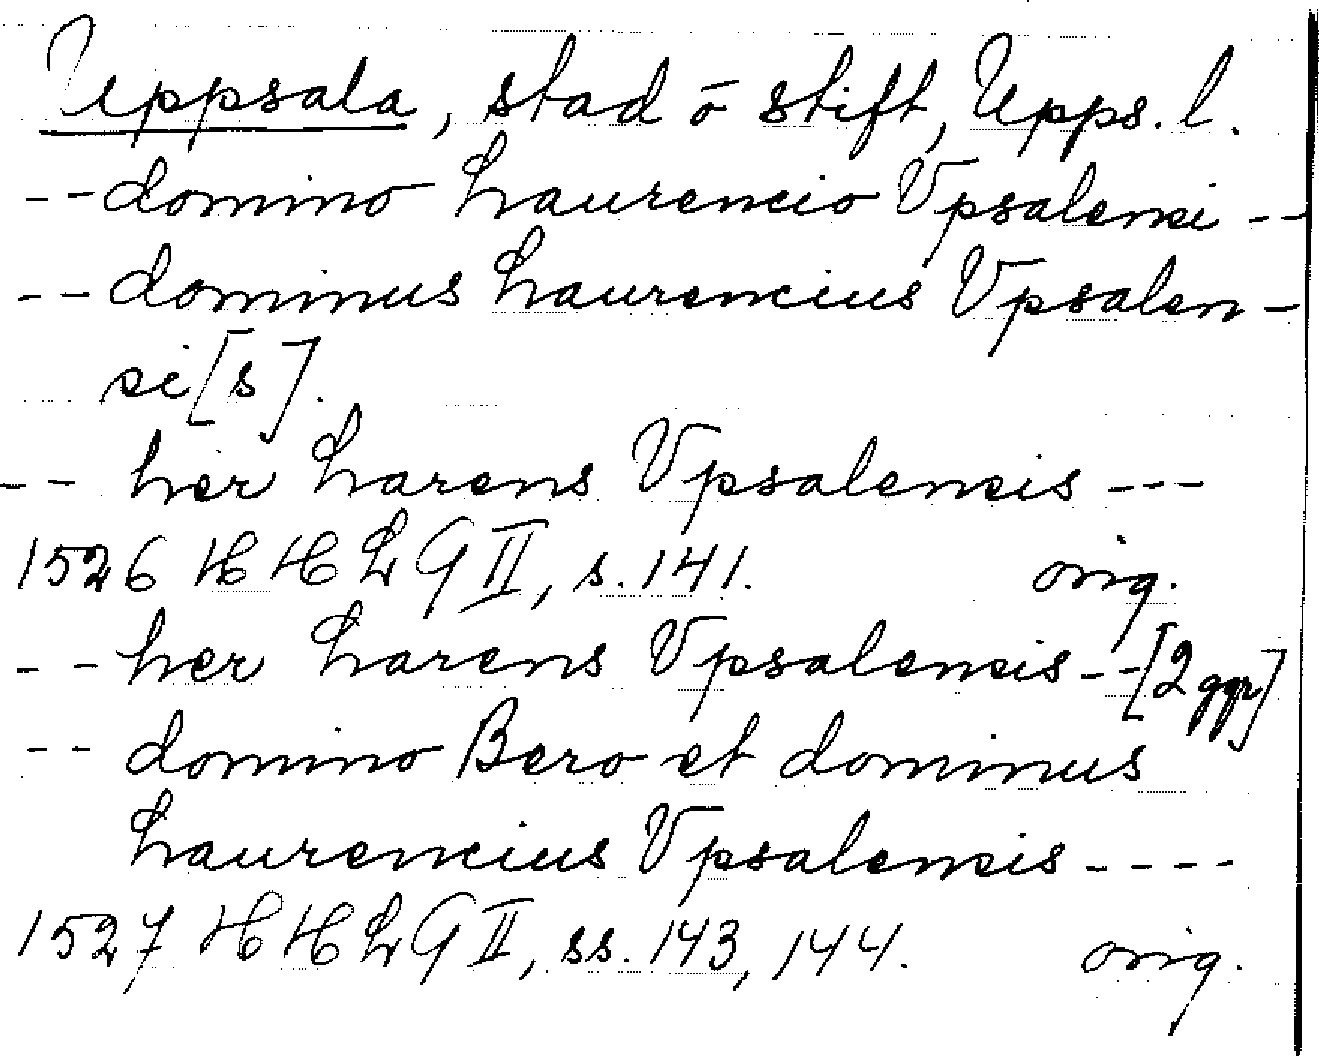 Uppsala, stad o stift, Upps. l.
-- domino Laurencio Vpsalensi --
-- dominus Laurencius Vpsalen-
si[s].
-- her Larens Vpsalensis ---
1526 HHLG II, s. 141. orig.
-- her Larens Vpsalensis -- [2 ggr]
-- domino Bero et dominus
Laurencius Vpsalensis ----
1527 HHLG II, ss. 143, 144. orig.